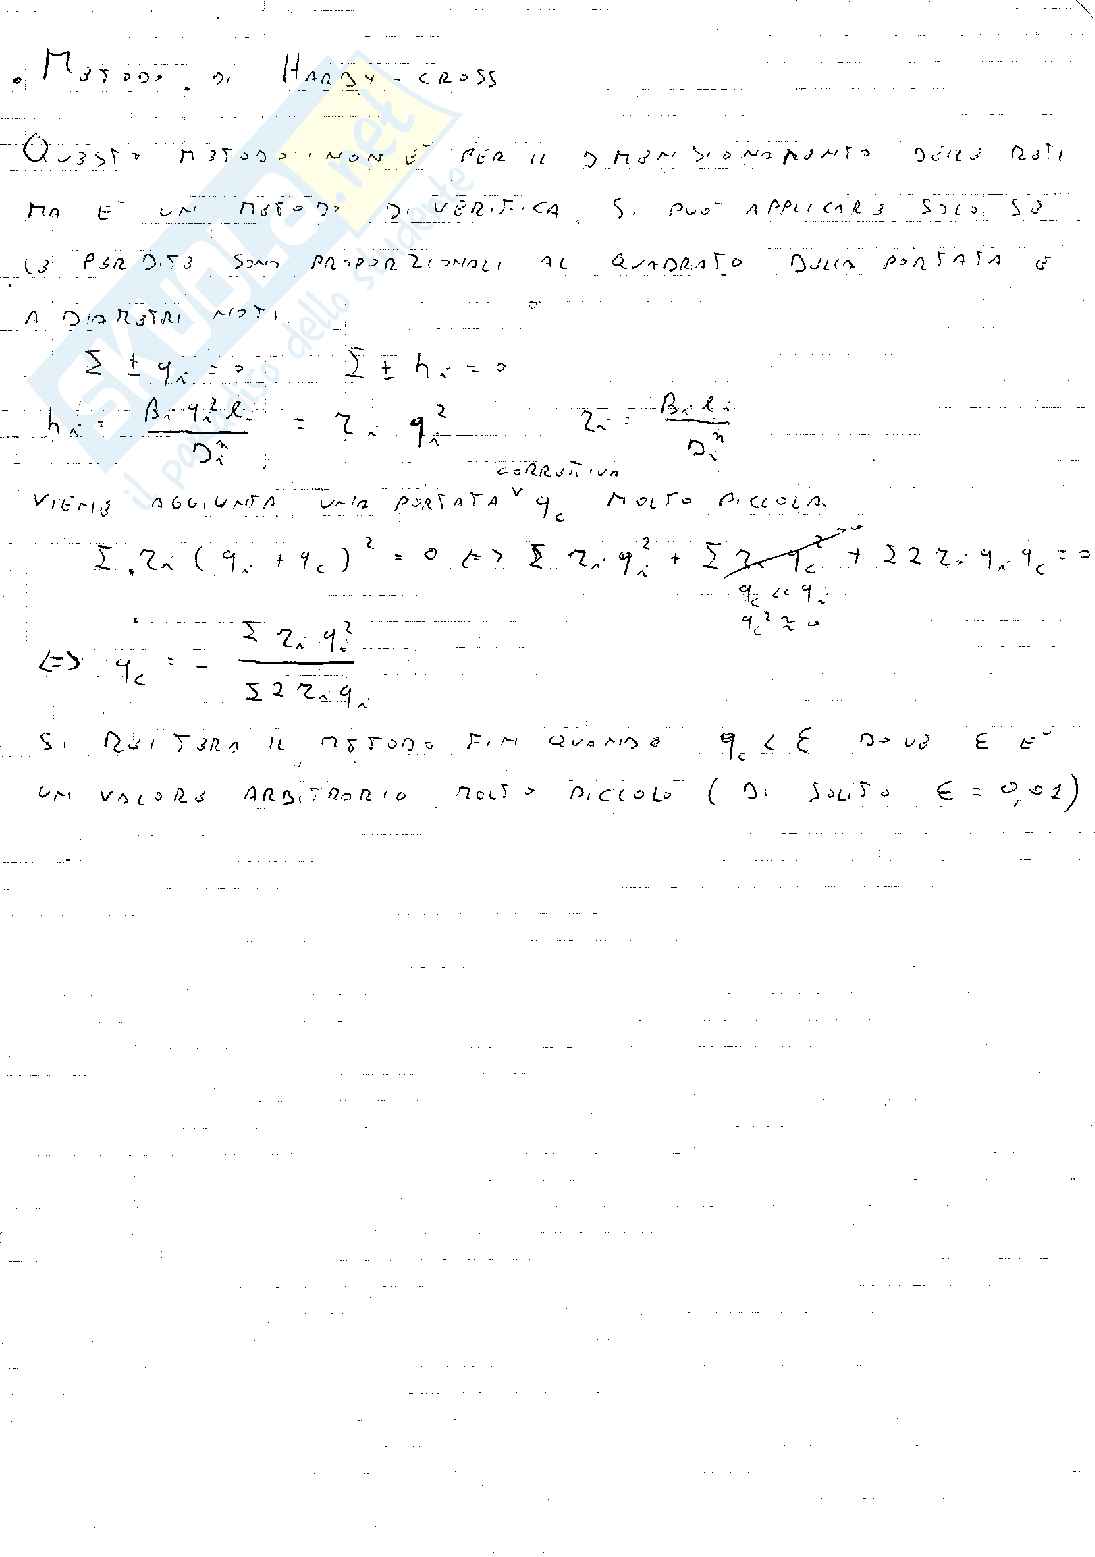 • METODO DI HARDY-CROSS
QUESTO METODO NON E' PER IL DIMENSIONAMENTO DELLE RETI
MA E' UN METODO DI VERIFICA. SI PUO' APPLICARE SOLO SE
LE PERDITE SONO PROPORZIONALI AL QUADRATO DELLA PORTATA E
A DIAMETRI NOTI.
Σ ± qᵢ = 0 Σ ± hᵢ = 0
hᵢ = βᵢ qᵢ² lᵢ / Dᵢⁿ = rᵢ qᵢ² rᵢ = βᵢ lᵢ / Dᵢⁿ
CORRETTIVA
VIENE AGGIUNTA UNA PORTATA ᵛ q_c MOLTO PICCOLA.
Σ rᵢ (qᵢ + q_c)² = 0 <=> Σ rᵢ qᵢ² + Σ rᵢ q_c² + Σ 2 rᵢ qᵢ q_c = 0
q_c << qᵢ
q_c² ≈ 0
<=> q_c = - Σ rᵢ qᵢ² / Σ 2 rᵢ qᵢ
SI REITERA IL METODO FIN QUANDO q_c < ε DOVE ε E'
UN VALORE ARBITRARIO MOLTO PICCOLO (DI SOLITO ε = 0,01)
SKUOLA.net
il paradiso dello studente